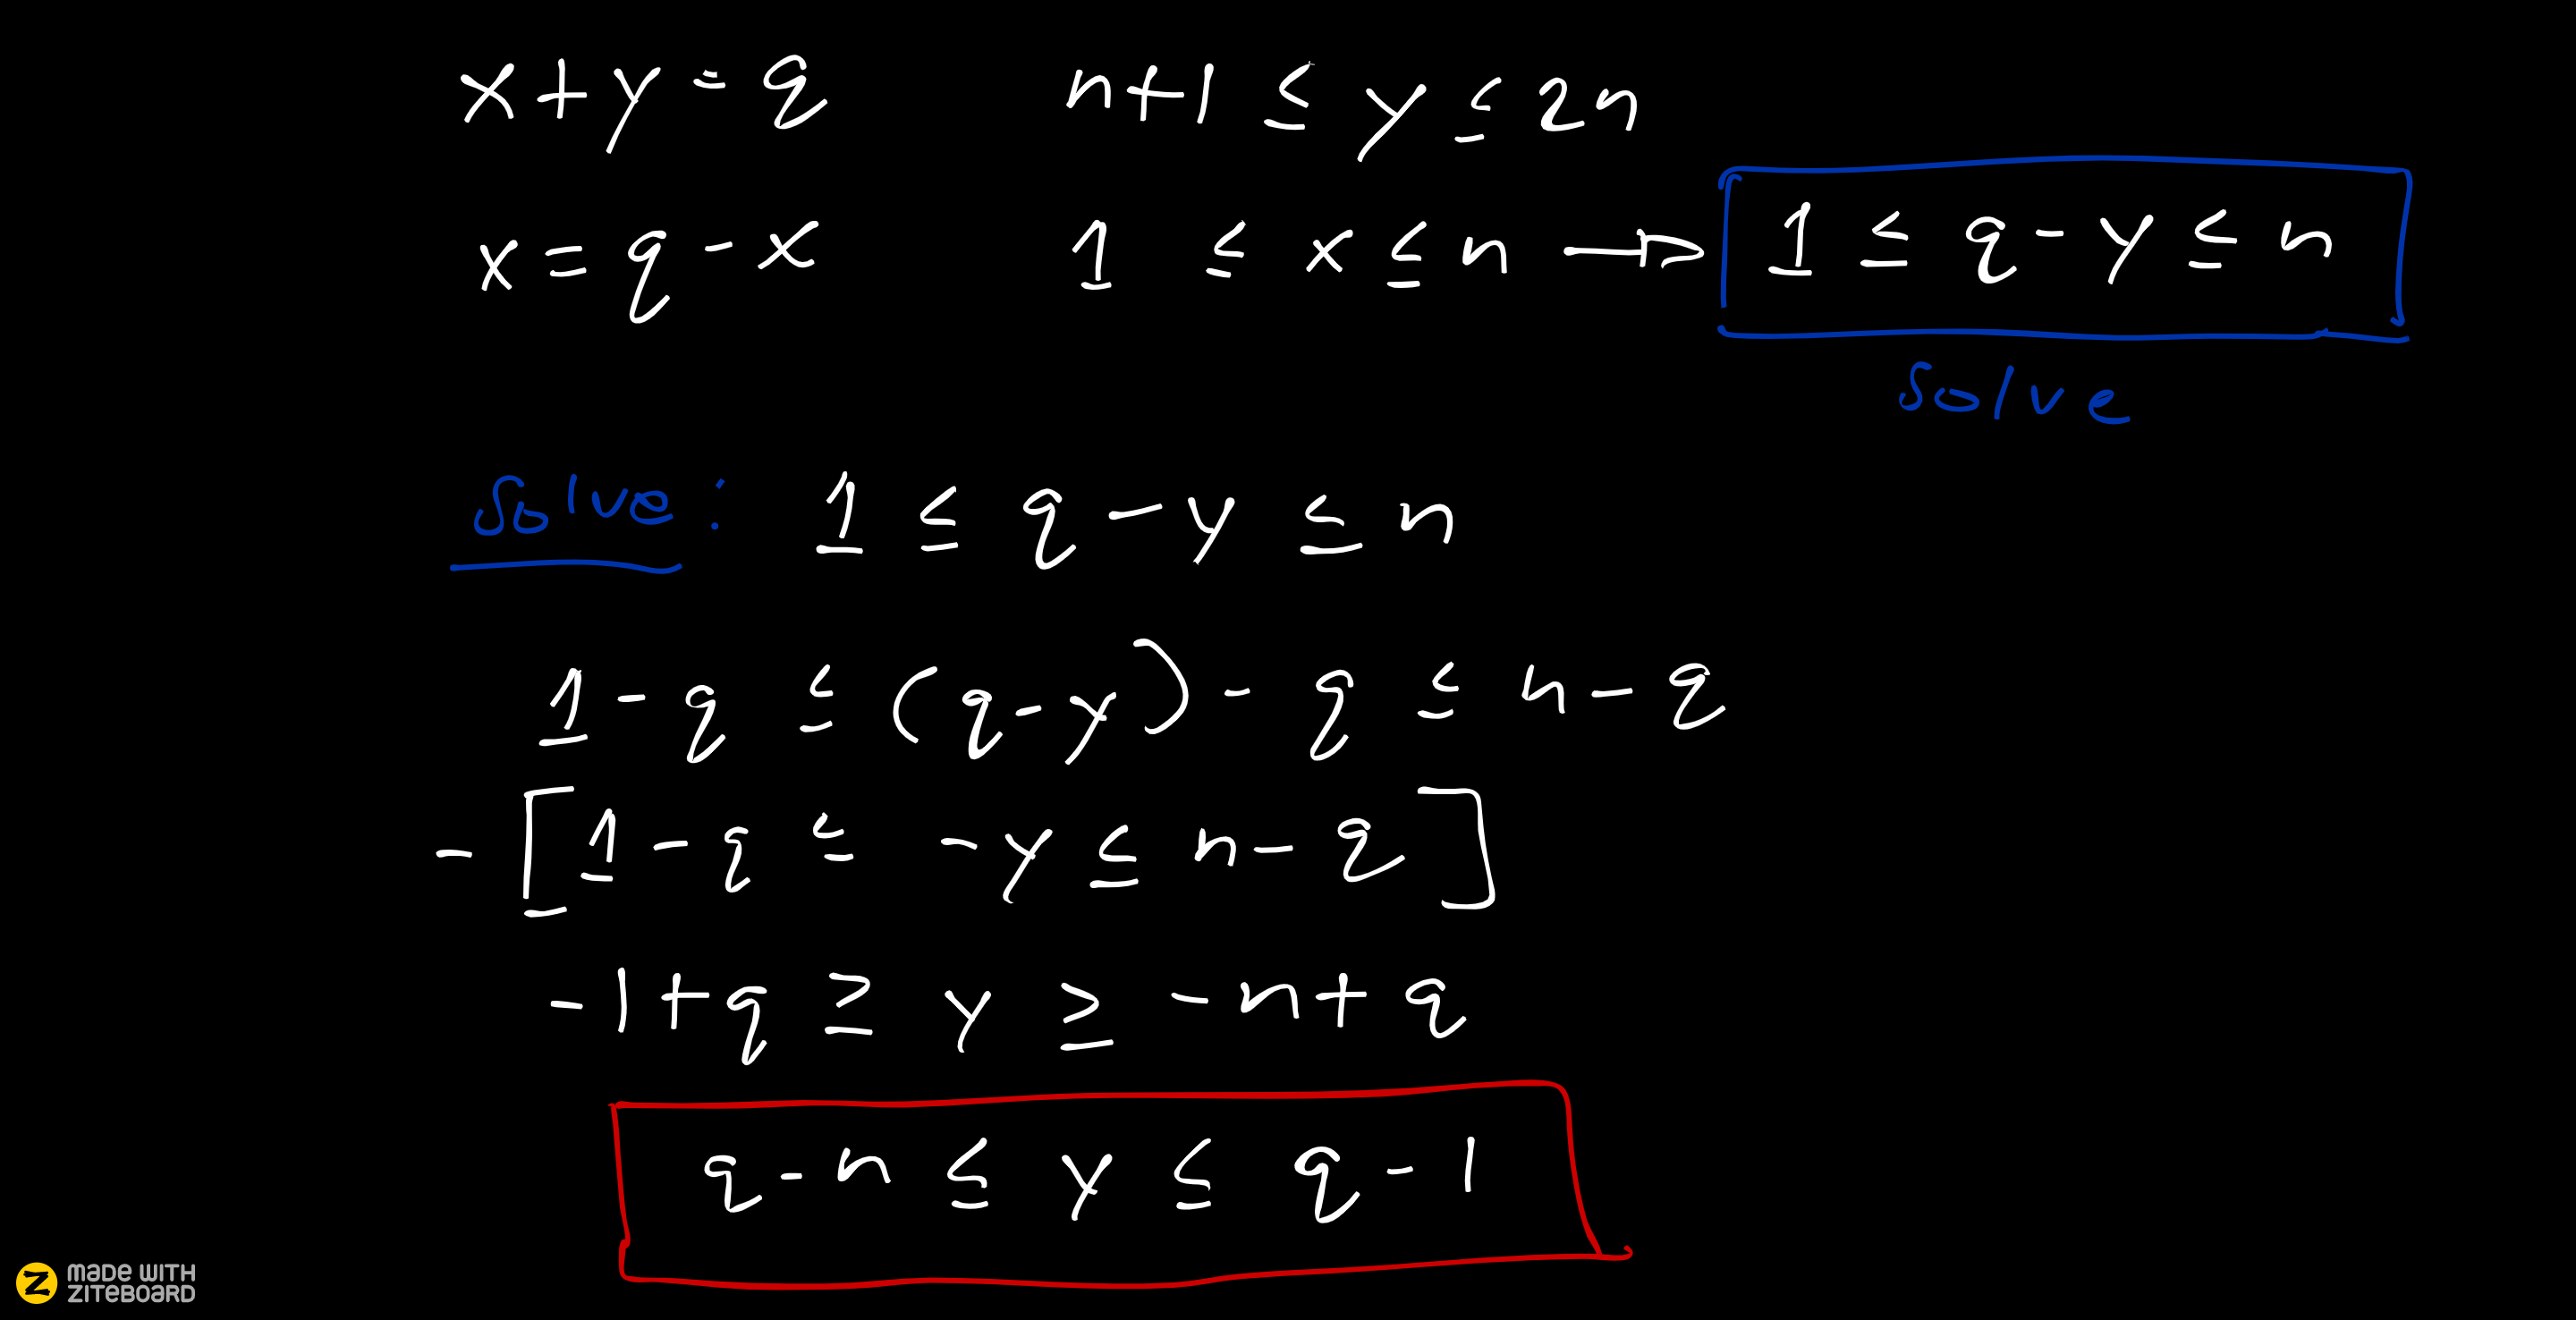 x+y=q n+1 ≤ y ≤ 2n
x = q - x 1 ≤ x ≤ n → 1 ≤ q - y ≤ n
Solve
Solve: 1 ≤ q - y ≤ n
1 - q ≤ (q - y) - q ≤ n - q
- [1 - q ≤ - y ≤ n - q]
- 1 + q ≥ y ≥ - n + q
q - n ≤ y ≤ q - 1
MADE WITH
ZITEBOARD